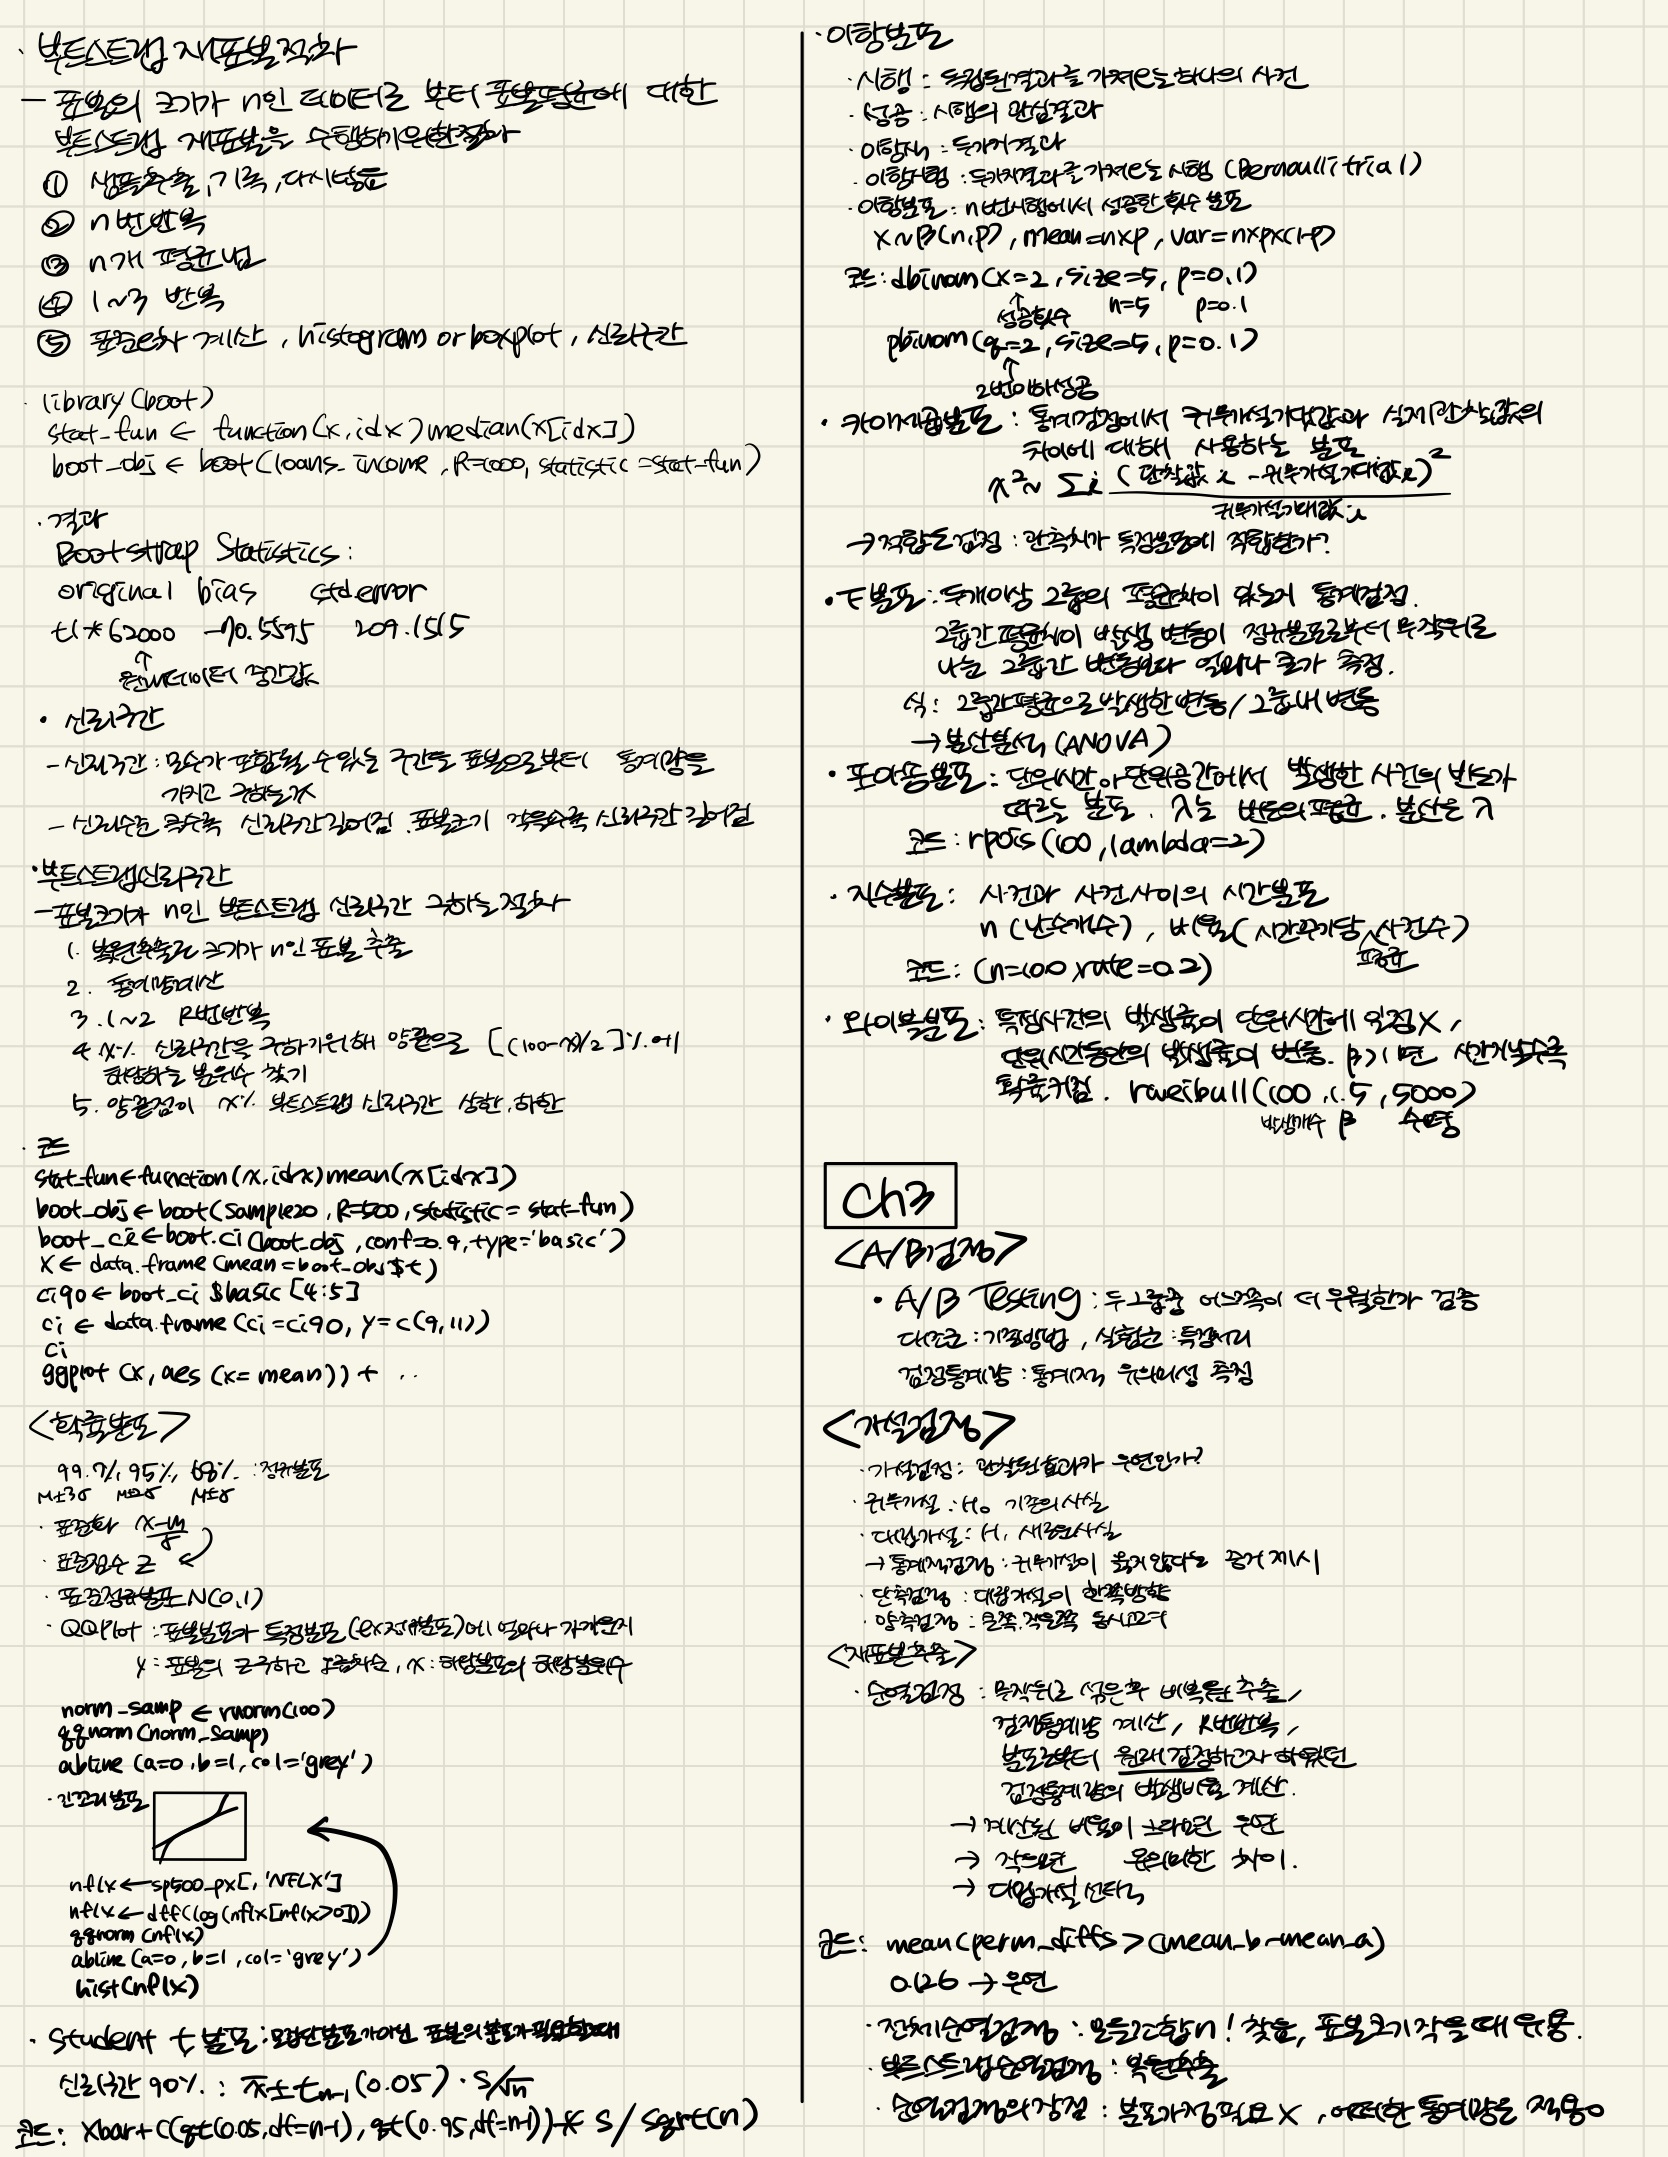 · 부트스트랩 재표본절차
- 표본의 크기가 n인 데이터로 부터 표본평균에 대한
부트스트랩 재표본을 수행하기위한절차
① 샘플추출, 기록, 다시넣음
② n번반복
③ n개 평균냄
④ 1~3 반복
⑤ 표준오차 계산, histogram or boxplot, 신뢰구간
· library(boot)
stat_fun ← function(x, idx) median(x[idx])
boot_obj ← boot(loans_income, R=1000, statistic=stat_fun)
· 결과
Bootstrap Statistics:
original bias std.error
t1* 62000 -70.5595 209.1515
↑
원본데이터 중간값
· 신뢰구간
- 신뢰구간 : 모수가 포함될 수 있는 구간을 표본으로부터 통계량을
가지고 구하는것
- 신뢰수준 클수록 신뢰구간길어짐. 표본크기 작을수록 신뢰구간 길어짐
· 부트스트랩신뢰구간
- 표본크기가 n인 부트스트랩 신뢰구간 구하는 절차
1. 복원추출로 크기가 n인 표본 추출
2. 통계량계산
3. 1~2 R번반복
4. x% 신뢰구간을 구하기위해 양끝으로 [(100-x)/2]%에
해당하는 분위수 찾기
5. 양끝점이 x% 부트스트랩 신뢰구간 상한, 하한
· 코드
stat_fun←function(x, idx) mean(x[idx])
boot_obj ← boot(sample20, R=500, statistic = stat_fun)
boot_ci ← boot.ci(boot_obj, conf=0.9, type='basic')
X ← data.frame(mean=boot_obj$t)
ci90 ← boot_ci $basic[4:5]
ci ← data.frame(ci=ci90, y=c(9,11))
ci
ggplot(x, aes(x=mean)) + ..
<확률분포>
99.7%, 95%, 68% : 정규분포
μ±3σ μ±2σ μ±σ
· 표준화 x-μ/σ
· 표준점수 z
· 표준정규분포 N(0,1)
· QQplot : 표본분포가 특정분포(ex정규분포)에 얼마나 가까운지
y = 표본의 z구하고 오름차순, x : 해당분포의 해당분위수
norm_samp ← rnorm(100)
qqnorm(norm_samp)
abline(a=0, b=1, col='grey')
· 긴꼬리분포
nflx ← sp500_px[, 'NFLX']
nflx ← diff(log(nflx[nflx>0]))
qqnorm(nflx)
abline(a=0, b=1, col='grey')
hist(nflx)
· Student t 분포 : 모집단분포가아닌 표본의분포가필요할때
신뢰구간 90% : x̄ ± tn-1(0.05) · s/√n
코드: xbar + c(qt(0.05, df=n-1), qt(0.95, df=n-1)) * s/sqrt(n)
· 이항분포
· 시행 : 독립된결과를 가져오는하나의 사건
· 성공 : 시행의 관심결과
· 이항식 : 두가지결과
· 이항시행 : 두가지결과를 가져오는 시행 (Bernoulli trial)
· 이항분포 : n번시행에서 성공한 횟수 분포
X~B(n,p), mean=n×p, var=n×p×(1-p)
코드: dbinom(x=2, size=5, p=0.1)
↑ 성공횟수 n=5 p=0.1
pbinom(q=2, size=5, p=0.1)
↑
2번이하성공
· 카이제곱분포 : 통계검정에서 귀무가설기대값과 실제관찰값의
차이에 대해 사용하는 분포
x²~ Σi (관찰값 i - 귀무가설기대값i)²
귀무가설기대값 i
→적합도검정 : 관측치가 특정분포에 적합한가?
· F분포 : 두개이상 그룹의 평균차이 있는지 통계검정.
그룹간평균차이 발생 변동이 정규분포로부터 무작위로
나눈 그룹간 변동보다 얼마나 큰가 측정.
식 : 그룹간평균으로발생한변동/그룹내변동
→ 분산분석 (ANOVA)
· 포아송분포 : 단위시간or단위공간에서 발생한 사건의 빈도가
따르는 분포. λ는 빈도의평균. 분산은 λ
코드 : rpois(100, lambda=2)
· 지수분포 : 사건과 사건사이의 시간분포
n(난수개수), 비율(시간주기당 사건수)
평균
코드 : (n=100, rate=0.2)
· 와이블분포 : 특정사건의 발생률이 단위시간에 일정X,
단위시간동안의 발생률이 변동. β>1면 시간지날수록
확률커짐. rweibull(100, 1.5, 5000)
발생개수 β 수명
Ch3
<A/B검정>
· A/B Testing : 두그룹중 어느쪽이 더 우월한가 검증
대조군 : 기존방법, 실험군 : 특정처리
검정통계량 : 통계적 유의미성 측정
<가설검정>
· 가설검정 : 관찰된효과가 우연인가?
· 귀무가설 : H₀ 기존의사실
· 대립가설 : H₁ 새로운사실
→ 통계적검정 : 귀무가설이 옳지 않다는 증거 제시
· 단측검정 : 대립가설이 한쪽방향
· 양측검정 : 큰쪽, 작은쪽 동시고려
<재표본추출>
· 순열검정 : 무작위로 섞은후 비복원 추출,
검정통계량 계산, R번반복,
분포로부터 원래검정하고자 하였던
검정통계량의 발생비율 계산.
→ 계산된 비율이 크다면 우연
→ 작으면 유의미한 차이.
→ 대립가설선택
코드: mean(perm_diffs > (mean_b-mean_a)
0.126 → 우연
· 전체순열검정 : 모든조합n! 찾음, 표본크기작을때 유용.
· 부트스트랩순열검정 : 복원추출
· 순열검정의장점 : 분포가정필요X, 어떠한 통계량을 적용o